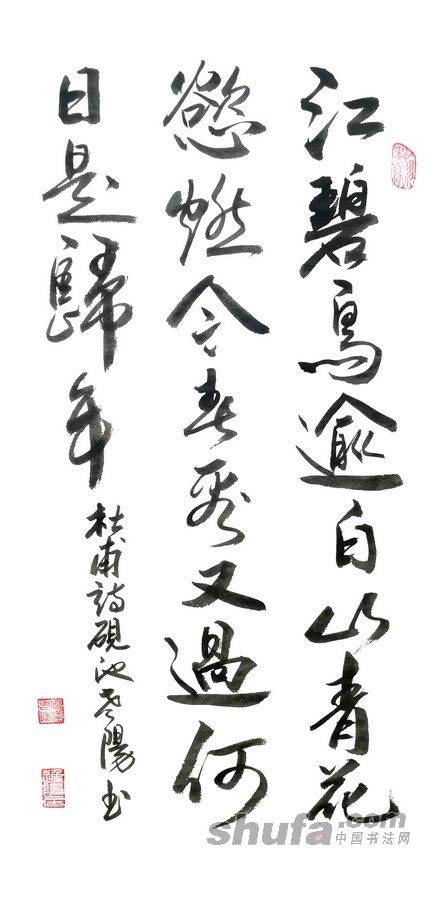 江碧鳥逾白山青花
慾燃今春看又過何
日是歸年
杜甫詩硯池陽书
shufa.com
中国书法网